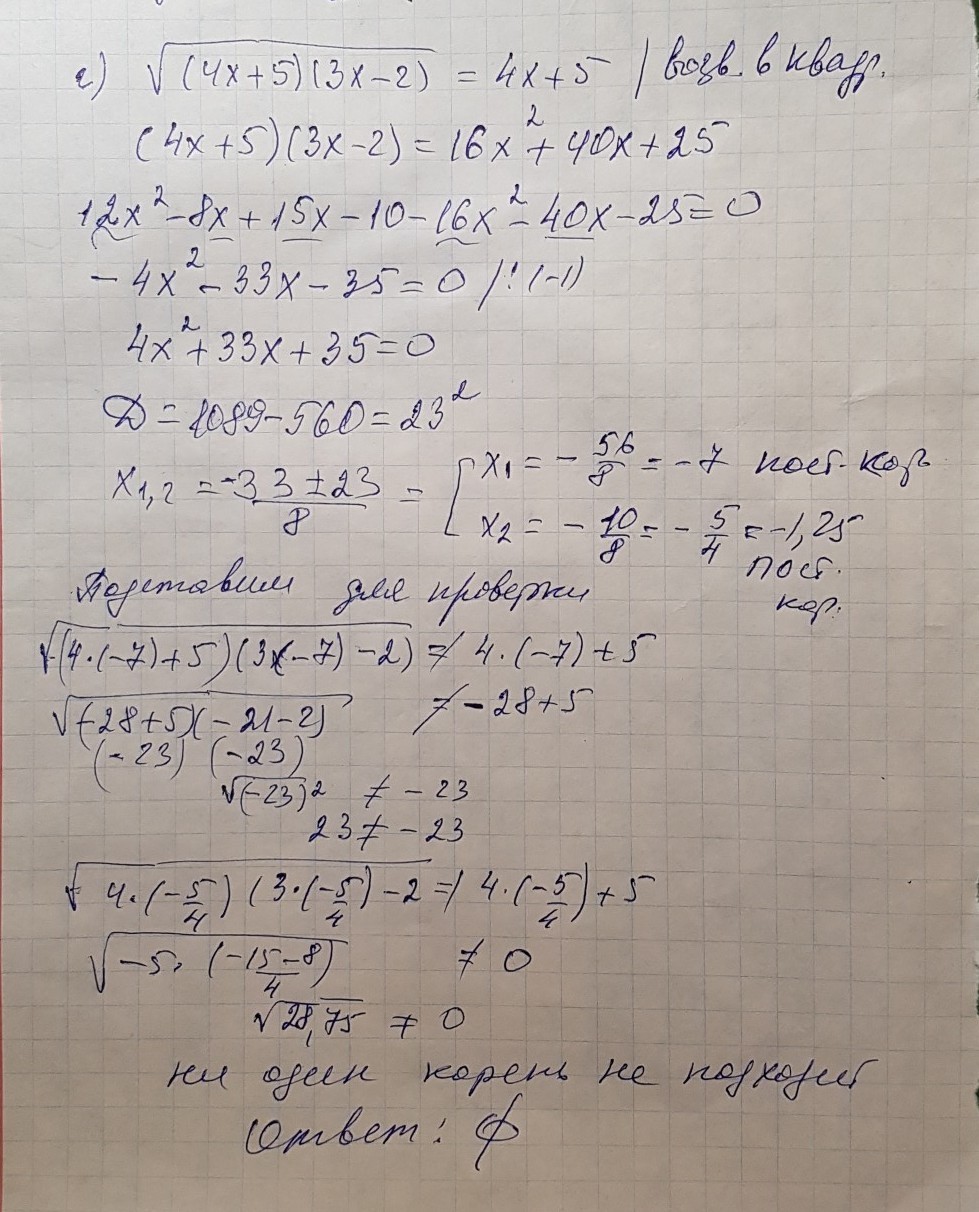 г) √(4x+5)(3x-2) = 4x+5 | возв. в квадр.
(4x+5)(3x-2) = 16x² + 40x + 25
12x² - 8x + 15x - 10 - 16x² - 40x - 25 = 0
- 4x² - 33x - 35 = 0 /: (-1)
4x² + 33x + 35 = 0
D = 1089 - 560 = 23²
x₁,₂ = -33 ± 23 / 8 = [ x₁ = - 56/8 = -7 пост. кор
x₂ = - 10/8 = - 5/4 = -1,25
пост.
кор.
Подставим для проверки
√(4·(-7)+5)(3x(-7)-2) ≠ 4·(-7)+5
√(-28+5)(-21-2) ≠ -28+5
(-23) (-23)
√(-23)² ≠ -23
23 ≠ -23
√4·(-5/4) (3·(-5/4)-2 ≠ 4·(-5/4)+5
√-5· (-15-8/4) ≠ 0
√28,75 ≠ 0
ни один корень не подходит
Ответ: ∅